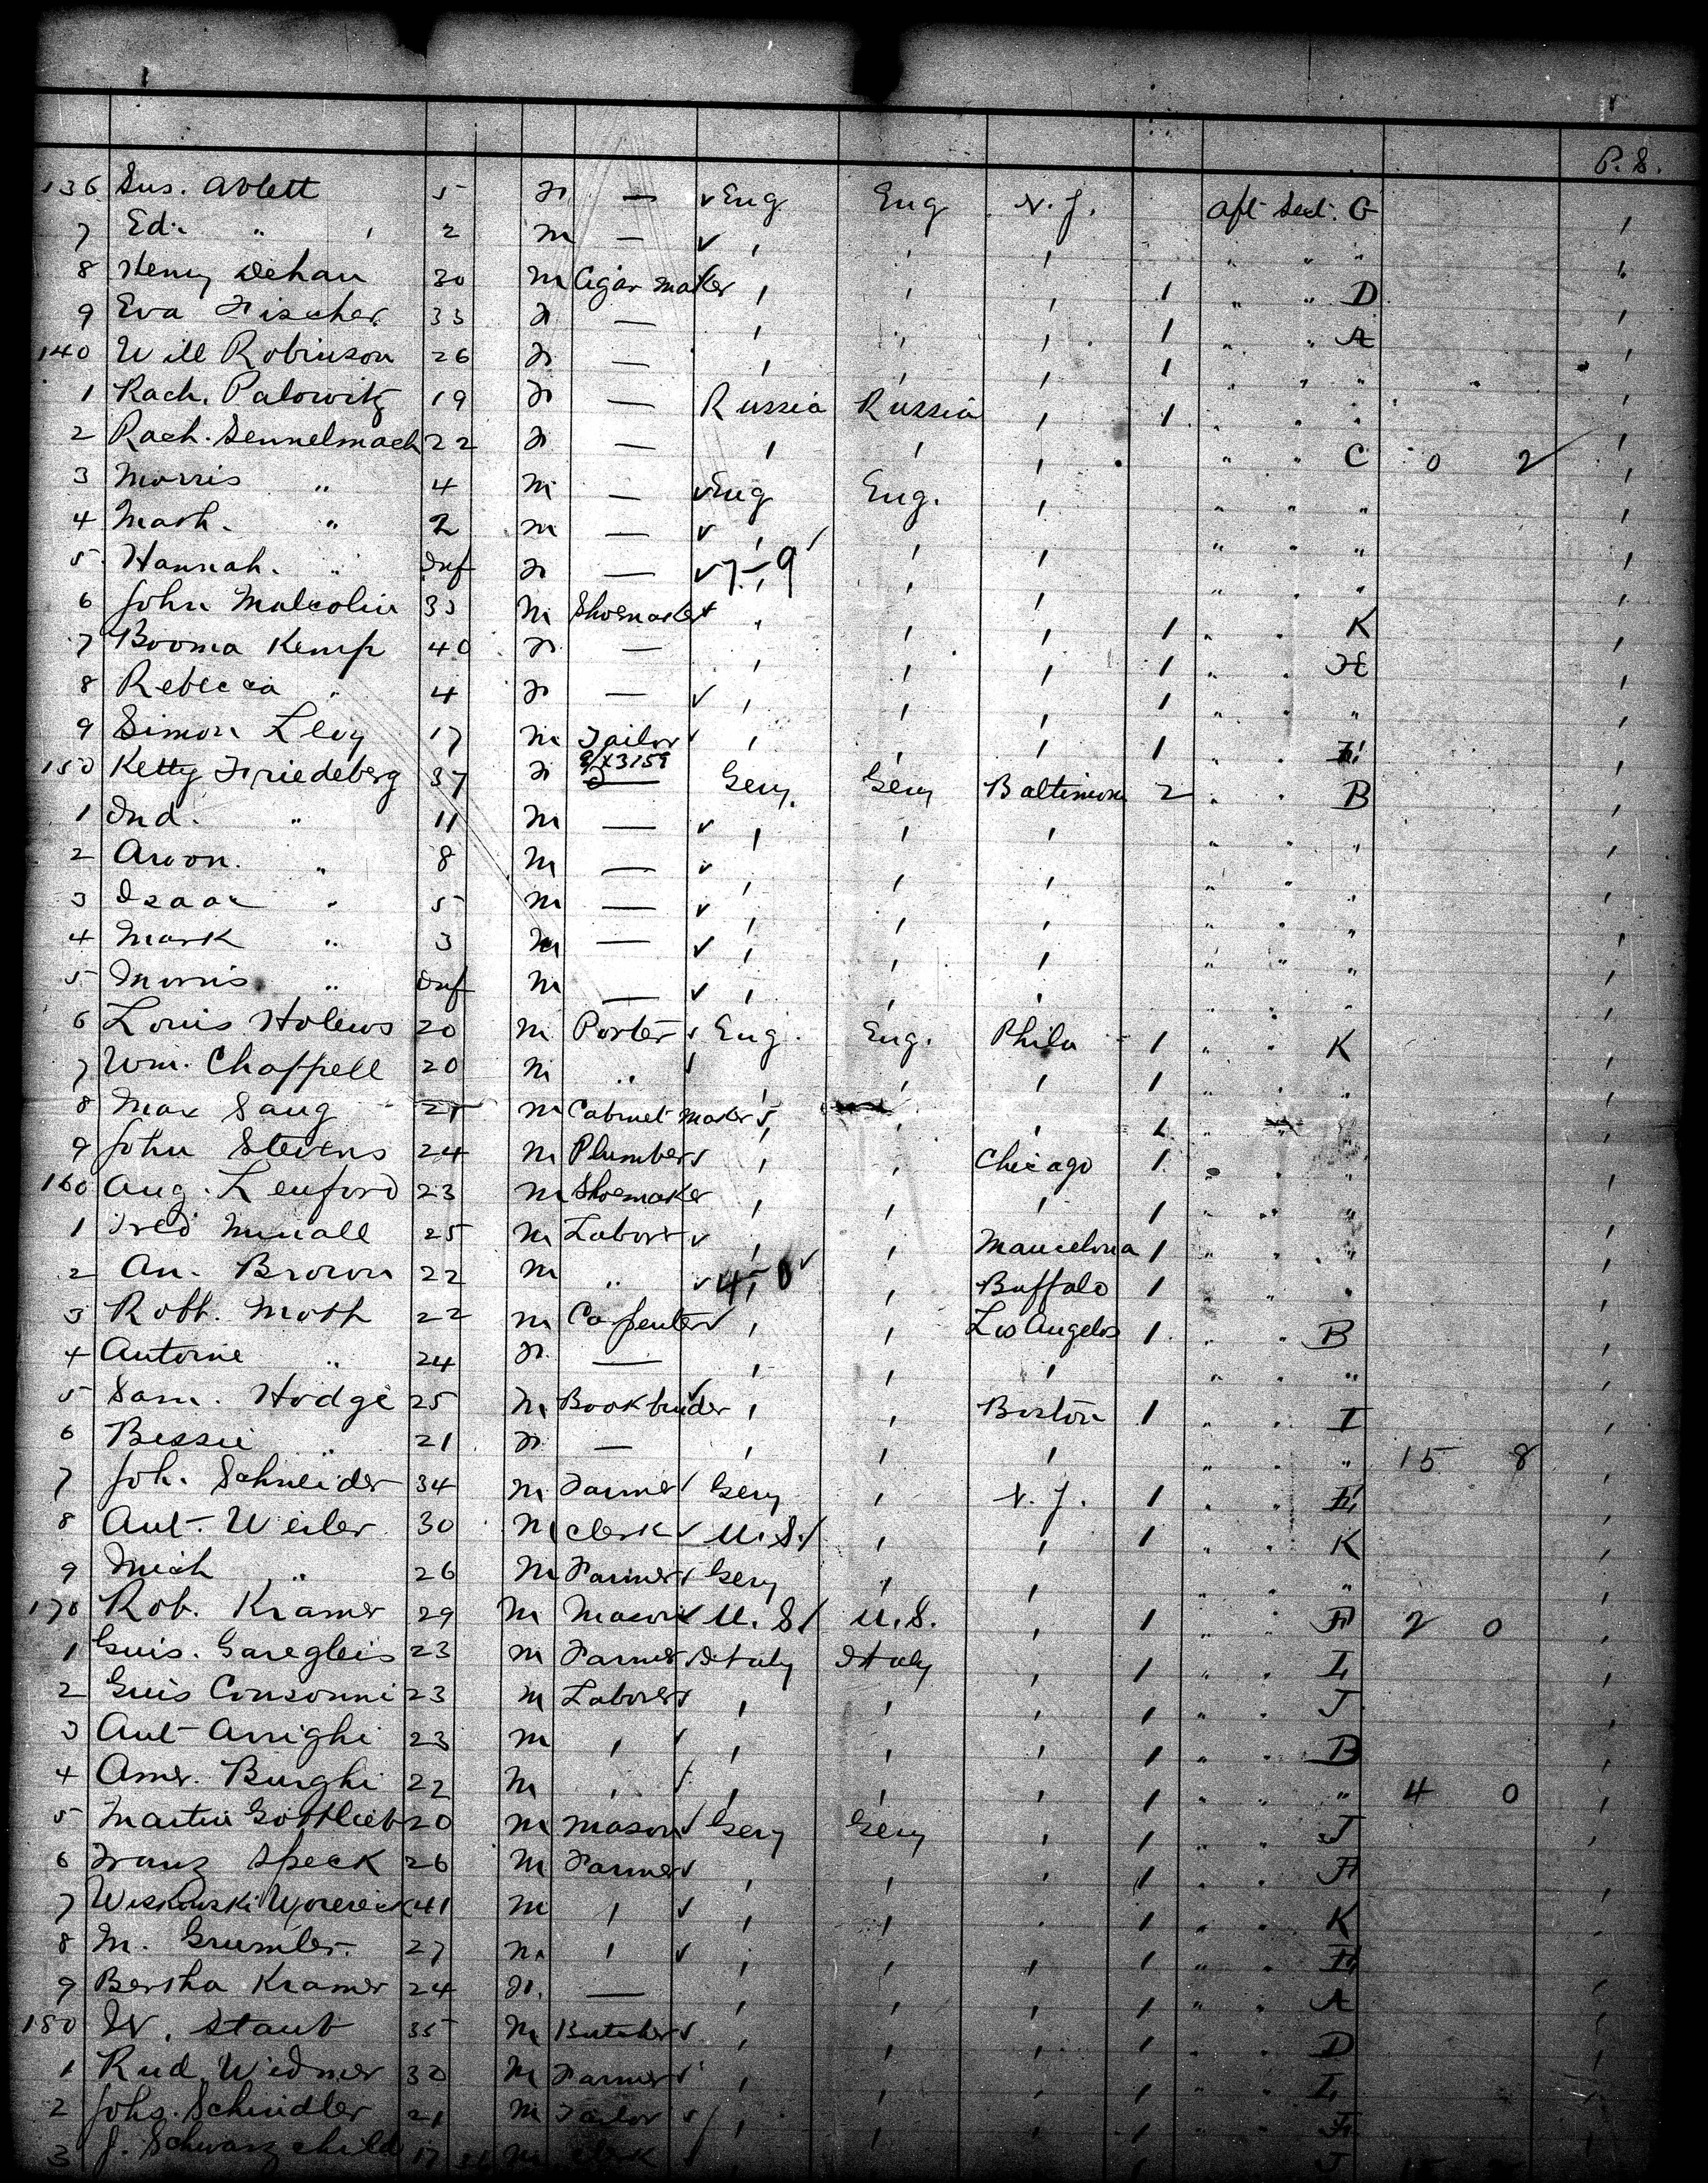 P.S.
136 Sus. Ablett 5 F — ✓ Eng Eng N.J. Aft Sect. G
7 Ed. " 2 M — ✓ " " " " " "
8 Henry Dehan 30 M Cigar maker " " " 1 " " D
9 Eva Fischer 33 F — " " " 1 " " A
140 Will Robinson 26 F — " " " 1 " " "
1 Rach. Palowitz 19 F — Russia Russia " 1 " " "
2 Rach. Sennelmach 22 F — " " " " " C 0 2
3 Morris " 4 M — ✓ Eng Eng. " " " "
4 Math. " 2 M — ✓ " " " " " "
5 Hannah. " Inf F — ✓ 7-9 " " " " "
6 John Malcolm 33 M Shoemaker " " " 1 " " K
7 Booma Kemp 40 F — " " " 1 " " H
8 Rebecca " 4 F — ✓ " " " 1 " " "
9 Simon Levy 17 M Tailor ✓ " " " 1 " "
150 Ketty Friedeberg 37 F — Gery. Gery Baltimore 2 " " B
1 Ind. " 11 M — ✓ " " " " " "
2 Aron. " 8 M — ✓ " " " " " "
3 Isaac " 5 M — ✓ " " " " " "
4 Mark " 3 M — ✓ " " " " " "
5 Morris " Inf M — ✓ " " " " " "
6 Louis 20 M Porter ✓ Eng. Eng. Phila 1 " " K
7 Wm. Chappell 20 M " ✓ " " " 1 " " "
8 Max Saug M Cabinet maker ✓ " " " 1 " " "
9 John Stevens 24 M Plumber ✓ " " Chicago 1 " " "
160 Aug. Lenford 23 M Shoemaker " " " 1 " " "
1 Fred 25 M Laborer ✓ " " Mancelona 1 " " "
2 An. Brown 22 M " ✓ " " Buffalo 1 " " "
3 Robt. Moth 22 M Carpenter ✓ " " Los Angelos 1 " " B
4 Antoine " 24 F — " " " " " "
5 Sam. Hodge 25 M Bookbinder ✓ " " Boston 1 " " I
6 Bessie " 21 F — " " " " " " 15 8
7 Joh. Schneider 34 M Farmer ✓ Gery " N.J. 1 " "
8 Ant. Weiler 30 M Clerk ✓ U.S. " " 1 " " K
9 Mich " 26 M Farmer ✓ Gery " " " " "
170 Rob. Kramer 29 M Mason ✓ U.S. U.S. " 1 " " F 2 0
1 Guis. Garegleis 23 M Farmer ✓ Italy Italy " 1 " "
2 Guis Consonni 23 M Laborer ✓ " " " 1 " " J
3 Ant Arrighi 23 M " ✓ " " " 1 " " B
4 Amer. Burghi 22 M " ✓ " " " 1 " " " 4 0
5 Martin Gottlieb 20 M Mason ✓ Gery Gery " 1 " " J
6 Franz Speck 26 M Farmer ✓ " " " 1 " " F
7 Wiskowski 41 M " ✓ " " " 1 " " K
8 M. Grumler. 27 M " ✓ " " " 1 " "
9 Bertha Kramer 24 F. — " " " 1 " " A
180 W. Staub 35 M Butcher ✓ " " " 1 " " D
1 Rud. Widmer 30 M Farmer ✓ " " " 1 " "
2 Johs. Schindler 21 M Tailor ✓ " " " 1 " " F
3 J. Schwarzchild 17 M Clerk ✓ J